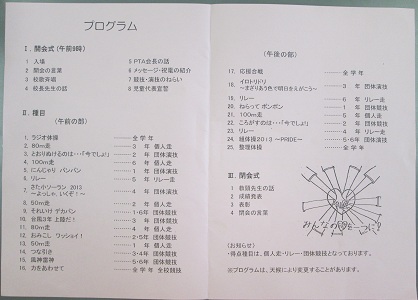 プログラム
Ⅰ．開会式（午前9時）
1 入場
2 開会の言葉
3 校歌斉唱
4 校長先生の話
5 PTA会長の話
6 メッセージ・祝電の紹介
7 競技・演技のねらい
8 児童代表宣誓
Ⅱ．種目
（午前の部）
1．ラジオ体操 全学年
2．80m走 3年 個人走
3．とおりぬけるのは…「今でしょ!」 2年 団体演技
4．100m走 6年 個人走
5．にんじゃり バンバン 1年 団体演技
6．リレー 5年 リレー走
7．きたかソーラン 2013
～よっしゃ、いくぞ!～ 4年 団体演技
8．50m走 2年 個人走
9．それいけ デカパン 1・6年 団体競技
10．台風3年 上陸だ! 3年 団体競技
11．80m走 4年 個人走
12．おみこし ワッショイ! 2・5年 団体競技
13．50m走 1年 個人走
14．つな引き 3・4年 団体競技
15．風神雷神 5・6年 団体競技
16．力をあわせて 全学年 全校競技
（午後の部）
17．応援合戦 全学年
18．イロトリドリ
～まざりあう色で明日をえがこう～ 3年 団体演技
19．リレー 6年 リレー走
20．ねらって ポンポン 1年 団体競技
21．100m走 5年 個人走
22．ころがすのは…「今でしょ!」 2年 団体競技
23．リレー 4年 リレー走
24．組体操2013 ～PRIDE～ 5・6年 団体演技
25．整理体操 全学年
Ⅲ．閉会式
1 教頭先生の話
2 成績発表
3 表彰
4 閉会の言葉
みんなの
一つに!
（お知らせ）
・得点種目は、個人走・リレー・団体競技となっております。
※プログラムは、天候により変更することがあります。